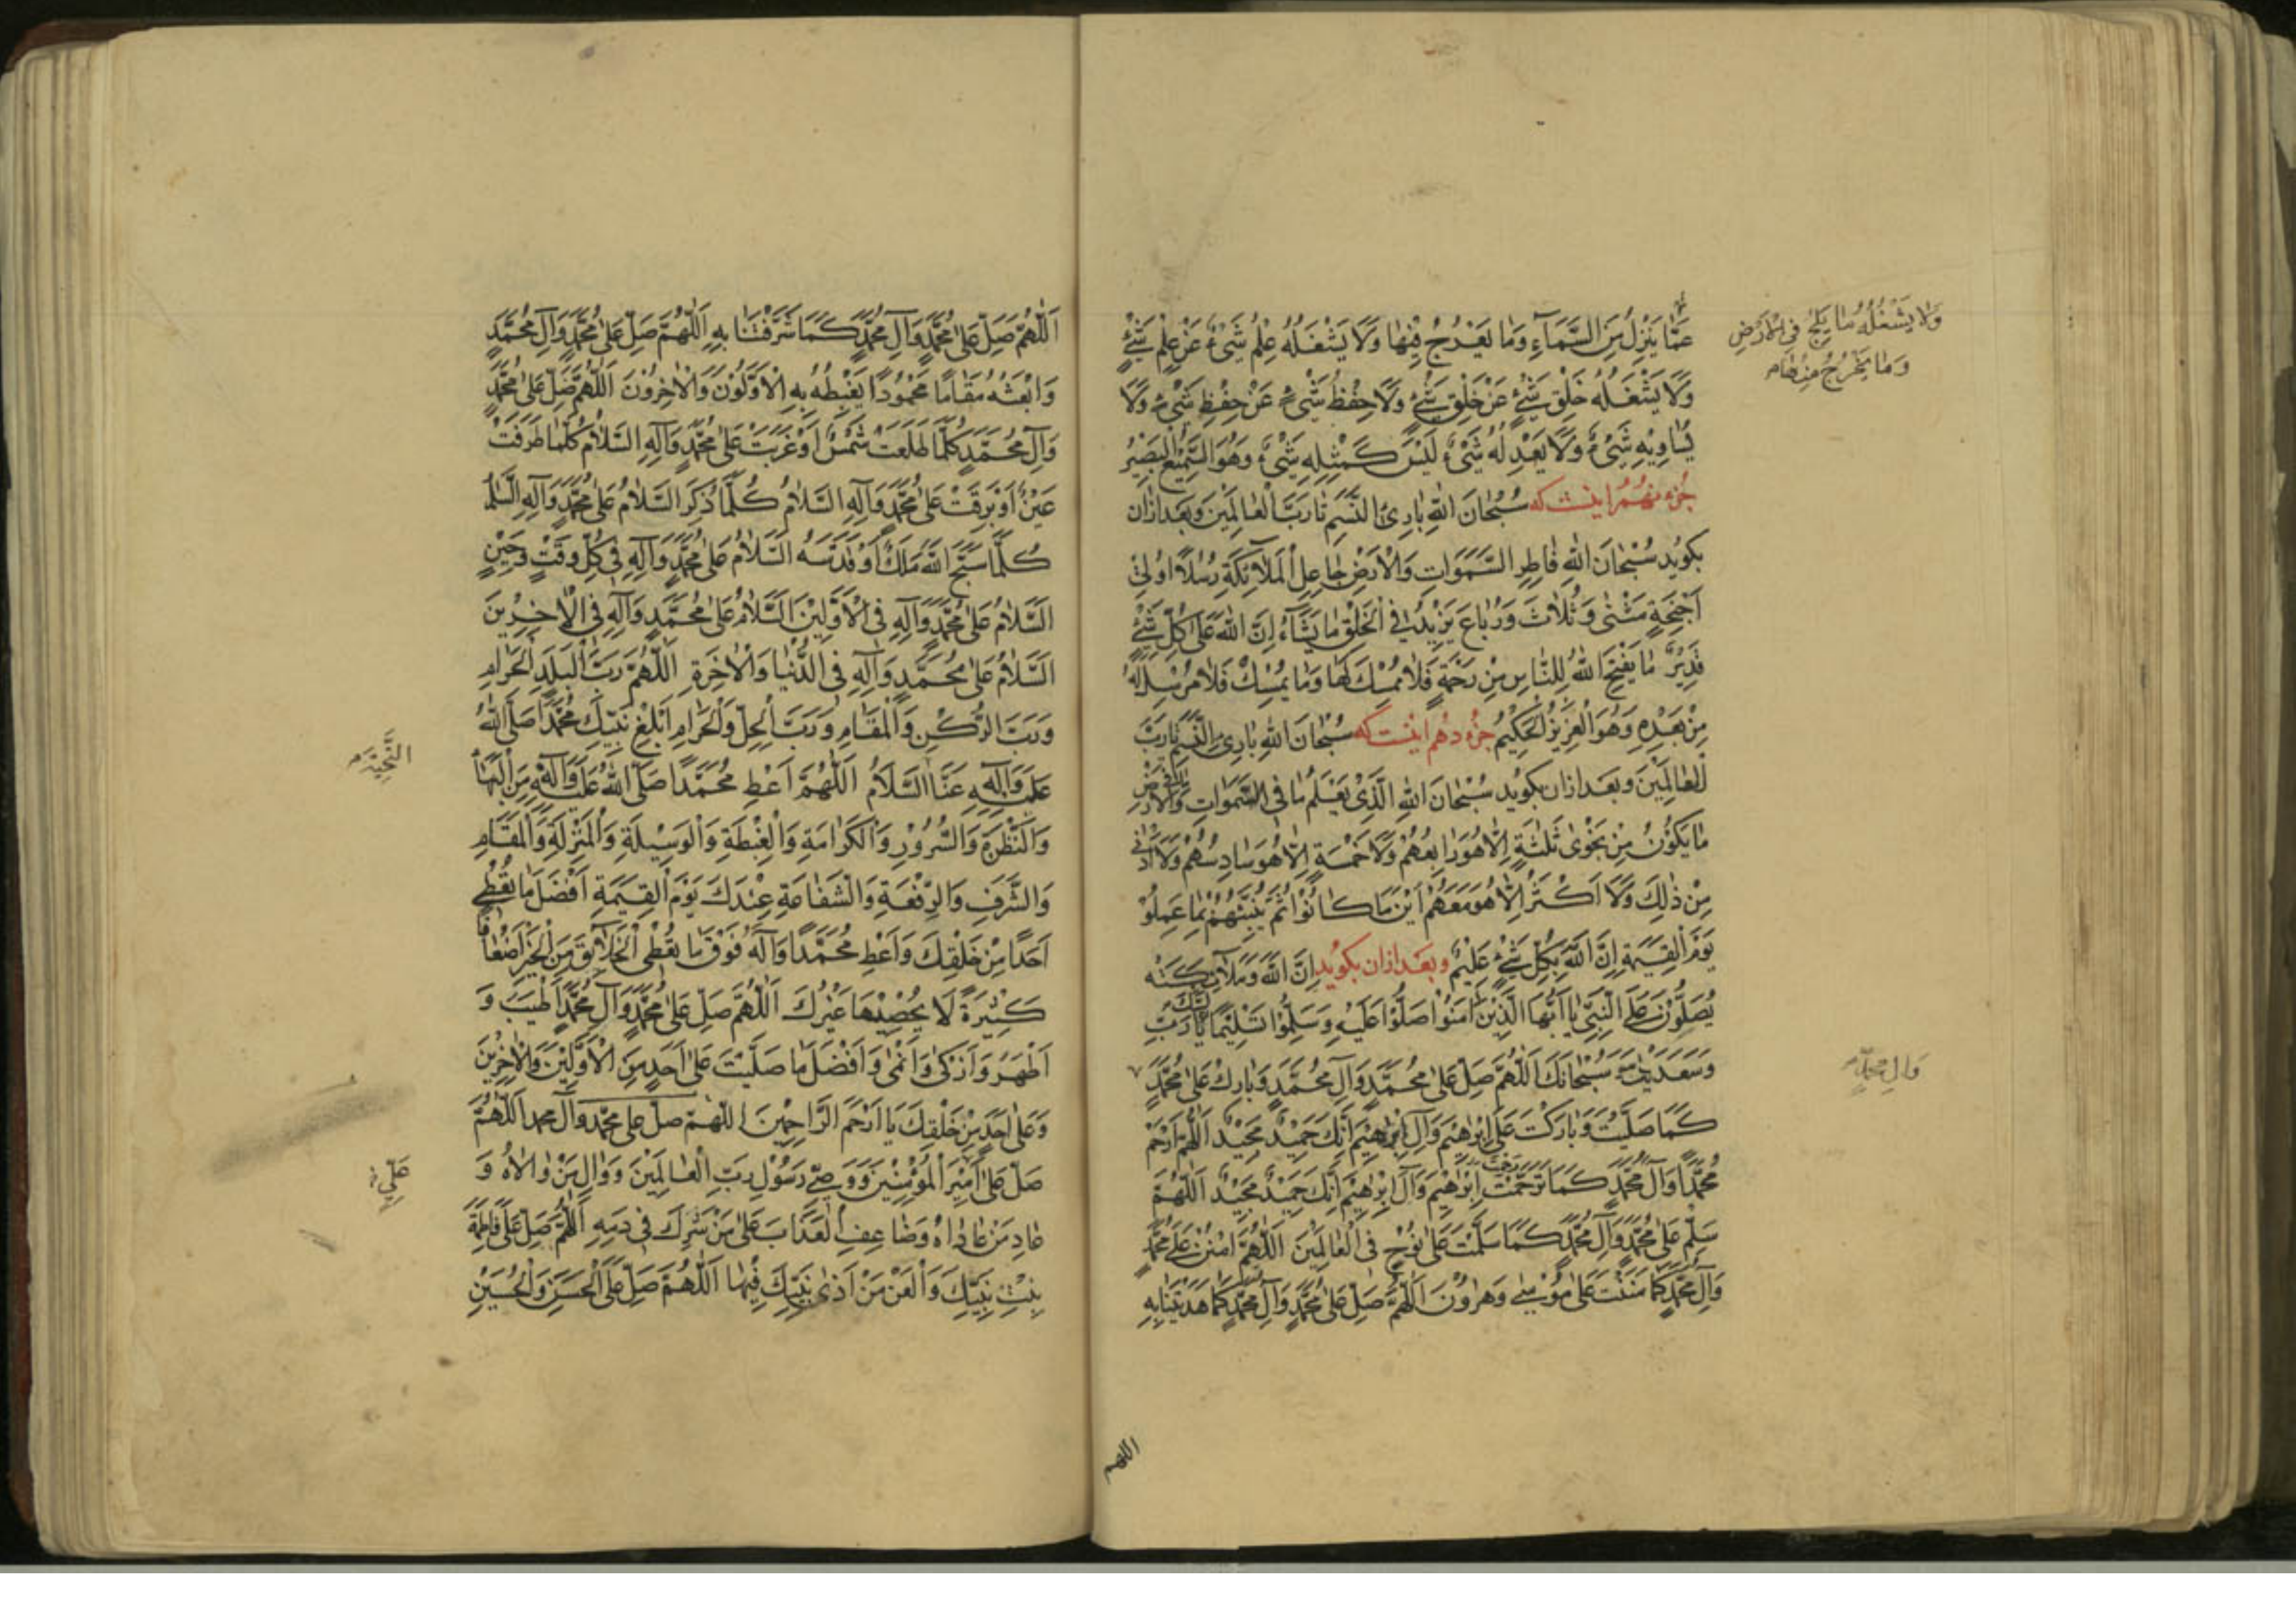 وَلا يَشْغَلُهُ مَا يَلِجُ فِى الْاَرْضِ
وَمَا يَخْرُجُ مِنْهَا م
عَمَّا يَنْزِلُ مِنَ السَّمَآءِ وَمٰا يَعْرُجُ فِيْهٰا وَلَا يَشْغَلُهُ عِلْمُ شَىْءٍ عَنْ عِلْمِ شَىْءٍ
وَلَا يَشْغَلُهُ خَلْقُ شَىْءٍ عَنْ خَلْقِ شَىْءٍ وَلَا حِفْظُ شَىْءٍ عَنْ حِفْظِ شَىْءٍ وَلَا
يُسٰاوِيْهِ شَىْءٌ وَلَا يَعْدِلُهُ شَىْءٌ لَيْسَ كَمِثْلِهِ شَىْءٌ وَهُوَ السَّمِيْعُ الْبَصِيْرُ
جزء نهم اینست که سُبْحٰانَ اللّٰهِ بٰارِئِ النَّسَمِ تا رَبِّ الْعٰالَمِيْنَ وبعد ازان
بکوید سُبْحٰانَ اللّٰهِ فٰاطِرِ السَّمٰوَاتِ وَالْاَرْضِ جٰاعِلِ الْمَلٰآئِكَةِ رُسُلًا اُولِىْ
اَجْنِحَةٍ مَثْنٰى وَثُلٰاثَ وَرُبٰاعَ يَزِيْدُ فِى الْخَلْقِ مٰا يَشٰآءُ اِنَّ اللّٰهَ عَلٰى كُلِّ شَىْءٍ
قَدِيْرٌ مٰا يَفْتَحِ اللّٰهُ لِلنّٰاسِ مِنْ رَحْمَةٍ فَلٰا مُمْسِكَ لَهٰا وَمٰا يُمْسِكْ فَلٰا مُرْسِلَ لَهُ
مِنْ بَعْدِهِ وَهُوَ الْعَزِيْزُ الْحَكِيْمُ جزء دهم اینست که سُبْحٰانَ اللّٰهِ بٰارِئِ النَّسَمِ تا رَبِّ
الْعٰالَمِيْنَ وبعد ازان بکوید سُبْحٰانَ اللّٰهِ الَّذِىْ يَعْلَمُ مٰا فِى السَّمٰوَاتِ وَمٰا فِى الْاَرْضِ
مٰا يَكُوْنُ مِنْ نَجْوٰى ثَلٰثَةٍ اِلّٰا هُوَ رٰابِعُهُمْ وَلَا خَمْسَةٍ اِلّٰا هُوَ سٰادِسُهُمْ وَلَا اَدْنٰى
مِنْ ذٰلِكَ وَلَا اَكْثَرَ اِلّٰا هُوَ مَعَهُمْ اَيْنَ مٰا كٰانُوْا ثُمَّ يُنَبِّئُهُمْ بِمٰا عَمِلُوْا
يَوْمَ الْقِيٰمَةِ اِنَّ اللّٰهَ بِكُلِّ شَىْءٍ عَلِيْمٌ وبعد ازان بکوید اِنَّ اللّٰهَ وَمَلٰآئِكَتَهُ
يُصَلُّوْنَ عَلَى النَّبِىِّ يٰا اَيُّهَا الَّذِيْنَ اٰمَنُوْا صَلُّوْا عَلَيْهِ وَسَلِّمُوْا تَسْلِيْمًا لَبَّيْكَ يٰا رَبِّ
وَسَعْدَيْكَ وَسُبْحٰانَكَ اَللّٰهُمَّ صَلِّ عَلٰى مُحَمَّدٍ وَآلِ مُحَمَّدٍ وَبٰارِكْ عَلٰى مُحَمَّدٍ
وَال محمّدٍ م
كَمٰا صَلَّيْتَ وَبٰارَكْتَ عَلٰى اِبْرٰاهِيْمَ وَآلِ اِبْرٰاهِيْمَ اِنَّكَ حَمِيْدٌ مَجِيْدٌ اَللّٰهُمَّ ارْحَمْ
مُحَمَّدًا وَآلَ مُحَمَّدٍ كَمٰا تَرَحَّمْتَ اِبْرٰاهِيْمَ وَآلَ اِبْرٰاهِيْمَ اِنَّكَ حَمِيْدٌ مَجِيْدٌ اَللّٰهُمَّ
سَلِّمْ عَلٰى مُحَمَّدٍ وَآلِ مُحَمَّدٍ كَمٰا سَلَّمْتَ عَلٰى نُوْحٍ فِى الْعٰالَمِيْنَ اَللّٰهُمَّ امْنُنْ عَلٰى مُحَمَّدٍ
وَآلِ مُحَمَّدٍ كَمٰا مَنَنْتَ عَلٰى مُوْسٰى وَهٰرُوْنَ اَللّٰهُمَّ صَلِّ عَلٰى مُحَمَّدٍ وَآلِ مُحَمَّدٍ كَمٰا هَدَيْتَنٰا بِهِ
اللهم
اَللّٰهُمَّ صَلِّ عَلٰى مُحَمَّدٍ وَآلِ مُحَمَّدٍ كَمٰا شَرَّفْتَنٰا بِهِ اَللّٰهُمَّ صَلِّ عَلٰى مُحَمَّدٍ وَآلِ مُحَمَّدٍ
وَابْعَثْهُ مَقٰامًا مَحْمُوْدًا يَغْبِطُهُ بِهِ الْاَوَّلُوْنَ وَالْاٰخِرُوْنَ اَللّٰهُمَّ صَلِّ عَلٰى مُحَمَّدٍ
وَآلِ مُحَمَّدٍ كُلَّمٰا طَلَعَتْ شَمْسٌ اَوْ غَرَبَتْ عَلٰى مُحَمَّدٍ وَآلِهِ السَّلٰامُ كُلَّمٰا طَرَفَتْ
عَيْنٌ اَوْ بَرِقَتْ عَلٰى مُحَمَّدٍ وَآلِهِ السَّلٰامُ كُلَّمٰا ذُكِرَ السَّلٰامُ عَلٰى مُحَمَّدٍ وَآلِهِ السَّلٰامُ
كُلَّمٰا سَبَّحَ اللّٰهَ مَلَكٌ اَوْ قَدَّسَهُ السَّلٰامُ عَلٰى مُحَمَّدٍ وَآلِهِ فِى كُلِّ وَقْتٍ وَحِيْنٍ
السَّلٰامُ عَلٰى مُحَمَّدٍ وَآلِهِ فِى الْاَوَّلِيْنَ السَّلٰامُ عَلٰى مُحَمَّدٍ وَآلِهِ فِى الْاٰخِرِيْنَ
السَّلٰامُ عَلٰى مُحَمَّدٍ وَآلِهِ فِى الدُّنْيٰا وَالْاٰخِرَةِ اَللّٰهُمَّ رَبَّ الْبَلَدِ الْحَرٰامِ
وَرَبَّ الرُّكْنِ وَالْمَقٰامِ وَرَبَّ الْحِلِّ وَالْحَرٰامِ اَبْلِغْ نَبِيَّكَ مُحَمَّدًا صَلَّى اللّٰهُ
عَلَيْهِ وَآلِهِ عَنَّا السَّلَامُ اَللّٰهُمَّ اَعْطِ مُحَمَّدًا صَلَّى اللّٰهُ عَلَيْهِ وَآلِهِ مِنَ الْبَهٰآءِ
وَالنَّظْرَةِ وَالسُّرُوْرِ وَالْكَرٰامَةِ وَالْغِبْطَةِ وَالْوَسِيْلَةِ وَالْمَنْزِلَةِ وَالْمَقٰامِ
وَالشَّرَفِ وَالرِّفْعَةِ وَالشَّفٰاعَةِ عِنْدَكَ يَوْمَ الْقِيٰمَةِ اَفْضَلَ مٰا تُعْطِىْ
اَحَدًا مِنْ خَلْقِكَ وَاَعْطِ مُحَمَّدًا وَآلَهُ فَوْقَ مٰا تُعْطِى الْخَلٰآئِقَ مِنَ الْخَيْرِ اَضْعٰافًا
كَثِيْرَةً لَا يُحْصِيْهٰا غَيْرُكَ اَللّٰهُمَّ صَلِّ عَلٰى مُحَمَّدٍ وَآلِ مُحَمَّدٍ اَطْيَبَ وَ
اَطْهَرَ وَاَزْكٰى وَاَنْمٰى وَاَفْضَلَ مٰا صَلَّيْتَ عَلٰى اَحَدٍ مِنَ الْاَوَّلِيْنَ وَالْاٰخِرِيْنَ
وَعَلٰى اَحَدٍ مِنْ خَلْقِكَ يٰا اَرْحَمَ الرّٰاحِمِيْنَ اللهمّ صلّ على محمّد وآل محمد اَللّٰهُمَّ
صَلِّ عَلٰى اَمِيْرِ الْمُؤْمِنِيْنَ وَوَصِىِّ رَسُوْلِ رَبِّ الْعٰالَمِيْنَ وَوٰالِ مَنْ وٰالٰاهُ وَ
عَلِىّ
عٰادِ مَنْ عٰادٰاهُ وَضٰاعِفِ الْعَذٰابَ عَلٰى مَنْ شَرِكَ فِى دَمِهِ اَللّٰهُمَّ صَلِّ عَلٰى فٰاطِمَةَ
بِنْتِ نَبِيِّكَ وَالْعَنْ مَنْ اٰذٰى نَبِيَّكَ فِيْهٰا اَللّٰهُمَّ صَلِّ عَلَى الْحَسَنِ وَالْحُسَيْنِ